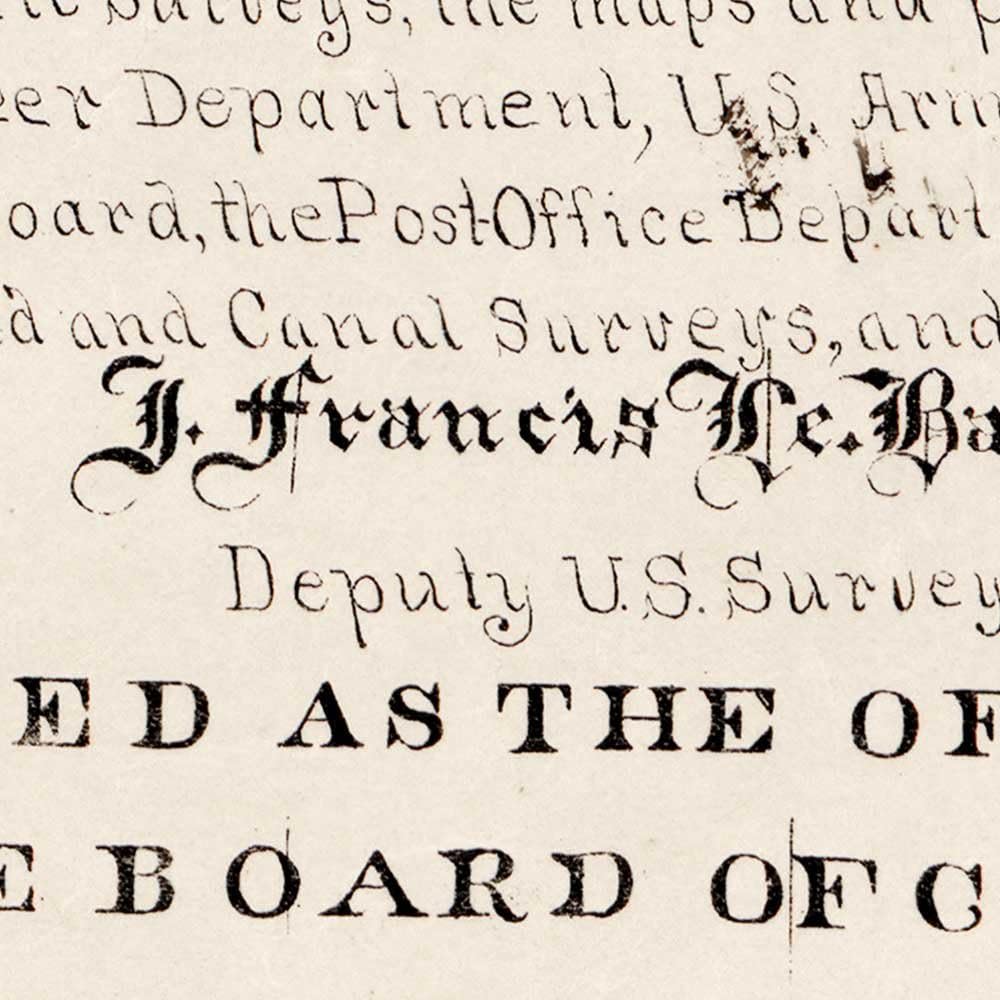 Surveys, the maps and
Department, U.S. Arm
oard, the Post-Office Depart
and Canal Surveys, and
J. Francis Le. Ba
Deputy U.S. Survey
ED AS THE OF
E BOARD OF C